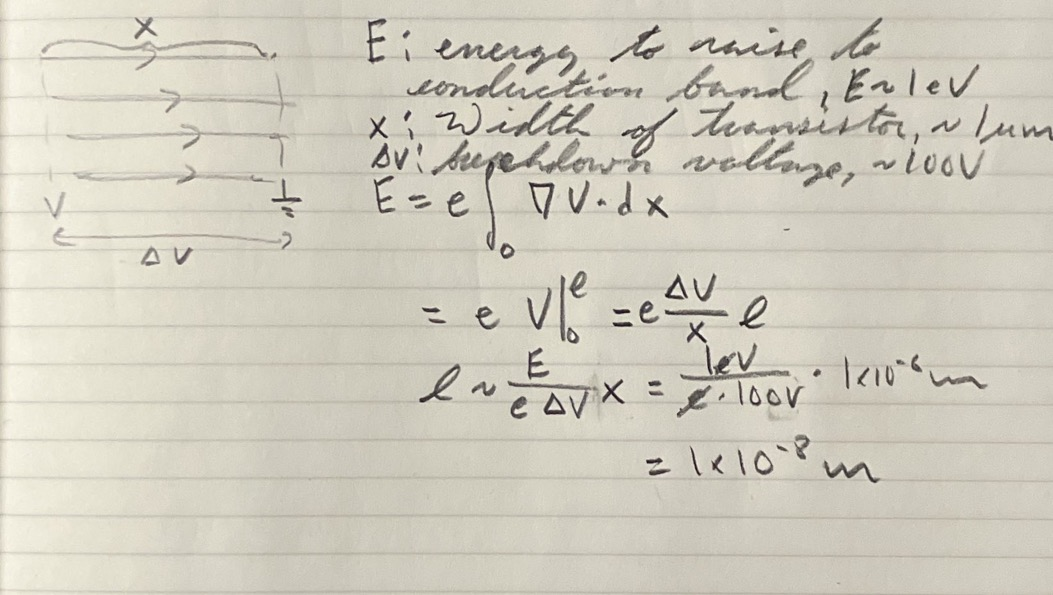 x
E: energy to raise to
conduction band, E~1eV
x: Width of transistor, ~1μm
ΔV: breakdown voltage, ~100V
V
E = e ∫₀ ∇V·dx
ΔV
= e V|₀ˡ = e ΔV/x ℓ
ℓ ~ E/(e ΔV) x = 1eV/(e·100V) · 1x10⁻⁶ m
= 1x10⁻⁸ m